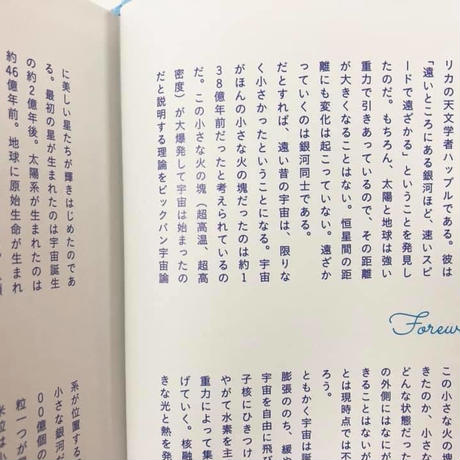 リカの天文学者ハッブルである。彼は
「遠いところにある銀河ほど、速いスピ
ードで遠ざかる」ということを発見し
たのだ。もちろん、太陽と地球は強い
重力で引きあっているので、その距離
が大きくなることはない。恒星間の距
離にも変化は起こっていない。遠ざか
っていくのは銀河同士である。
だとすれば、遠い昔の宇宙は、限りな
く小さかったということになる。宇宙
がほんの小さな火の塊だったのは約1
38億年前だったと考えられているの
だ。この小さな火の塊（超高温、超高
密度）が大爆発して宇宙は始まったの
だと説明する理論をビックバン宇宙論
Forew
この小さな火の塊
きたのか、小さな
どんな状態だった
の外側にはなにが
きることはないが
とは現時点では不
ろう。
ともかく宇宙は誕
膨張ののち、緩や
宇宙を自由に飛び
子核にひきつけ
やがて水素を主
重力によって集
げていく。核融
きな光と熱を発
に美しい星たちが輝きはじめたのであ
る。最初の星が生まれたのは宇宙誕生
の約2億年後。太陽系が生まれたのは
約46億年前。地球に原始生命が生まれ
系が位置する
小さな銀河だ
00億個の
粒一つが
米粒は小